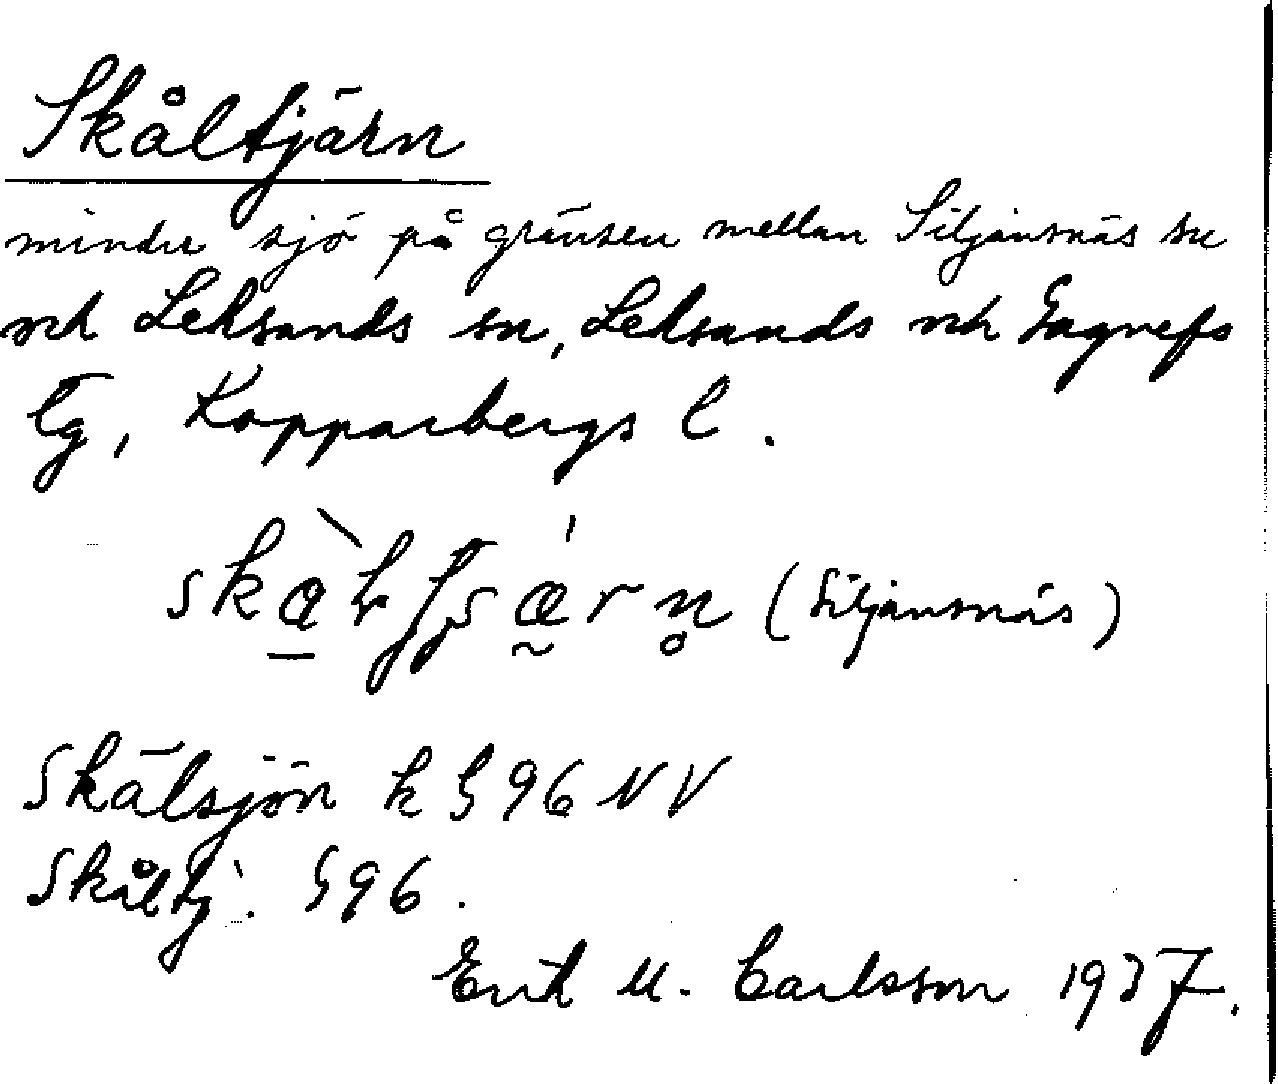 Skåltjärn
mindre sjö på gränsen mellan Siljansnäs sn
och Leksands sn, Leksands och Gagnefs
tg, Kopparbergs l.
(Siljansnäs)
Skålsjön k § 96 NV
Skåltj. § 96.
Erik M. Carlsson 1937.